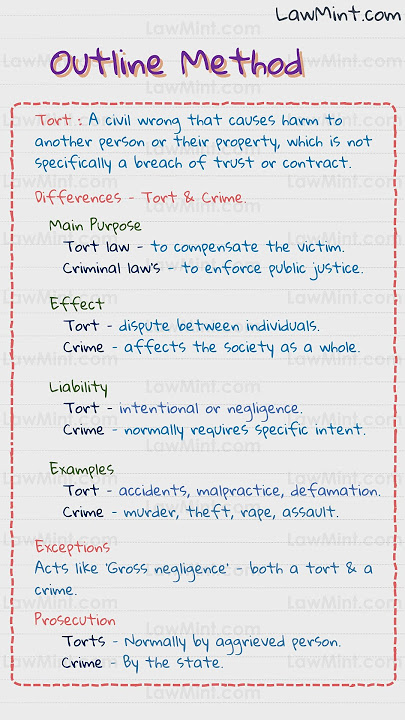 LawMint.com
Outline Method
Tort : A civil wrong that causes harm to
another person or their property, which is not
specifically a breach of trust or contract.
Differences - Tort & Crime.
Main Purpose
Tort law - to compensate the victim.
Criminal law's - to enforce public justice.
Effect
Tort - dispute between individuals.
Crime - affects the society as a whole.
Liability
Tort - intentional or negligence.
Crime - normally requires specific intent.
Examples
Tort - accidents, malpractice, defamation.
Crime - murder, theft, rape, assault.
Exceptions
Acts like 'Gross negligence' - both a tort & a
crime.
Prosecution
Torts - Normally by aggrieved person.
Crime - By the state.